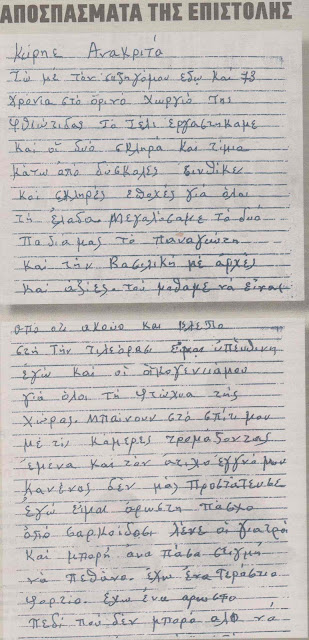 ΑΠΟΣΠΑΣΜΑΤΑ ΤΗΣ ΕΠΙΣΤΟΛΗΣ
Κύριε Ανακριτά
Ζώ με τον σηζηγόμου εδω και 73
χρόνια στο ορινό χωργιό της
Φθιώτιδας το Τελι εργαστηκαμε
και οι δυό σκληρά και τίμια
κάτω απο δυσκολες σινθίκες
και σκληρες εποχές γιά όλοι
τη ελαδα. Μεγαλόσαμε τα δυό
παδιαμας το παναγιώτη
και την Βασιλική με αρχές
και αξίες. του μαθαμε νά είναι
απο οτι ακούω και βλεπο
στη Την τιλεόραση είμαι υπέυθινη
εγώ και οι οικογενιάμου
για όλοι τη φτώχυα της
χώρας. Μπαίνουν στο σπίτι μου
με τις κάμερες τρομαδοντας
έμενα και τον ατιλο εγγνό μου
κανένας δεν μας προστάτευσε
εγώ είμαι άρωστη πάσχο
από σαρκοίδοση λένε οι γιατροί
και μπορή ανα πάσα στιγμή
νά πεθάνο. έχω ένα Τεράστιο
φορτίο. έχω ένα αρωστο
πεδί που δεν μπορα αλο νά